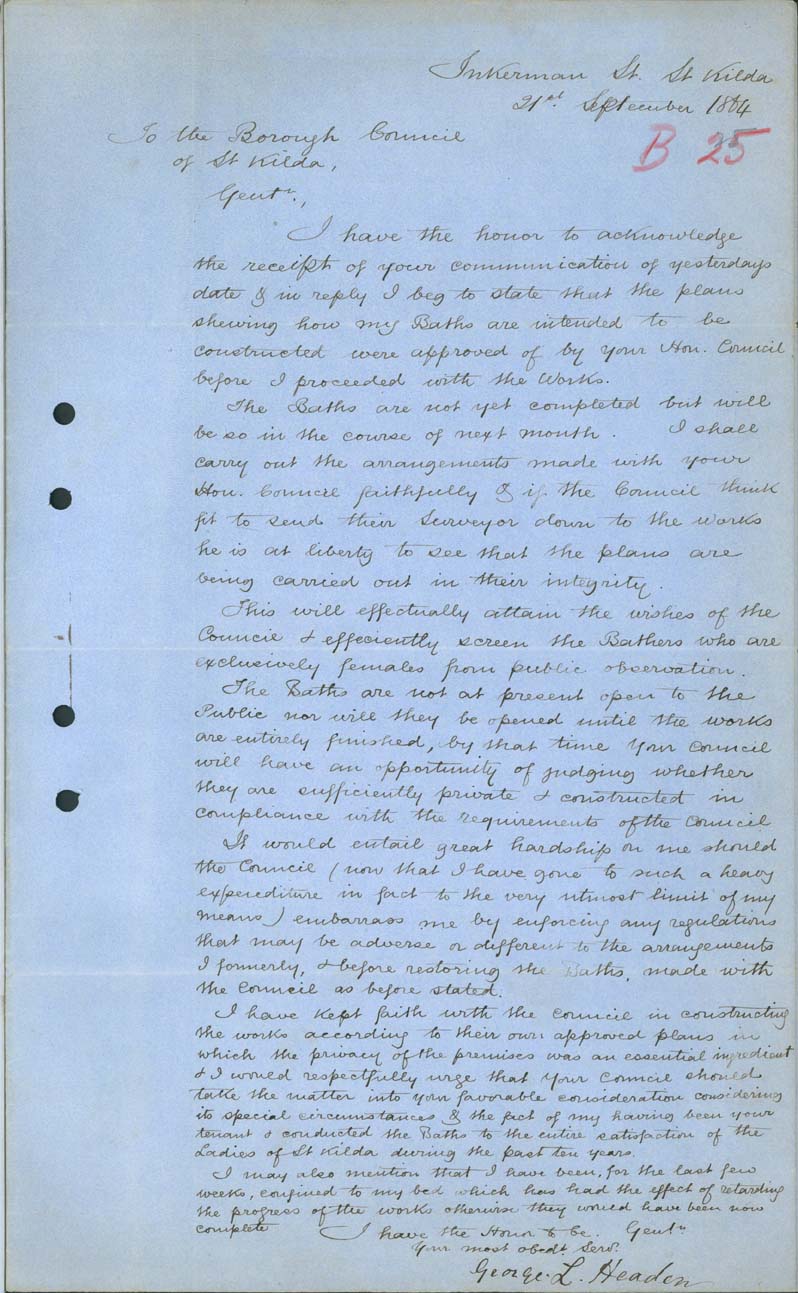 Inkerman St. St Kilda
21st September 1864
B 25
To the Borough Council
of St Kilda,
Gentn.,
I have the honor to acknowledge
the receipt of your communication of yesterdays
date & in reply I beg to state that the plans
shewing how my Baths are intended to be
constructed were approved of by your Hon. Council
before I proceeded with the Works.
The Baths are not yet completed but will
be so in the course of next month. I shall
carry out the arrangements made with your
Hon. Council faithfully & if the Council think
fit to send their Surveyor down to the works
he is at liberty to see that the plans are
being carried out in their integrity.
This will effectually attain the wishes of the
Council & effeciently screen the Bathers who are
exclusively females from public observation.
The Baths are not at present open to the
Public nor will they be opened until the works
are entirely finished, by that time Your Council
will have an opportunity of judging whether
they are sufficiently private & constructed in
compliance with the requirements of the Council
It would entail great hardship on me should
the Council (now that I have gone to such a heavy
expenditure in fact to the very utmost limit of my
means) embarrass me by enforcing any regulations
that may be adverse or different to the arrangements
I formerly, & before restoring the Baths, made with
the Council as before stated.
I have kept faith with the Council in constructing
the works according to their own approved plans in
which the privacy of the premises was an essential ingredient
& I would respectfully urge that Your Council should
take the matter into your favorable consideration considering
its special circumstances & the fact of my having been your
tenant & conducted the Baths to the entire satisfaction of the
Ladies of St Kilda during the past ten years.
I may also mention that I have been, for the last few
weeks, confined to my bed which has had the effect of retarding
the progress of the works otherwise they would have been now
complete I have the Honor to be. Gentn
Your most obedt. Servt.
George. L. Headen